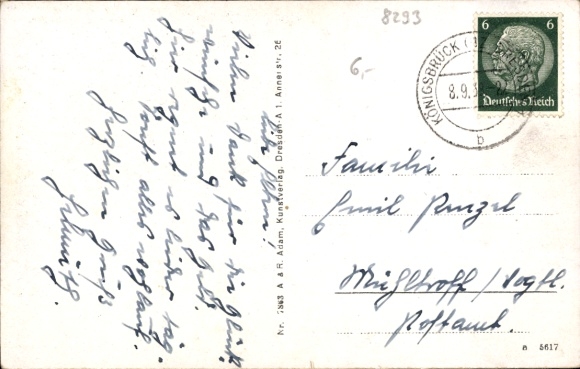 8293
6,-
6 6
Deutsches Reich
KÖNIGSBRÜCK
8.9.
b
Vielen Dank für die Glück-
wünsche und das Geld.
Hier regnet es leider täg-
lich. Sonst alles wohlauf.
Herzlichen Gruß
Helmuth.
Nr. 7863 A. & R. Adam, Kunstverlag, Dresden-A 1, Annenstr. 26
Familie
Emil Penzel
Mühltroff / Vogtl.
Postamt.
a 5617